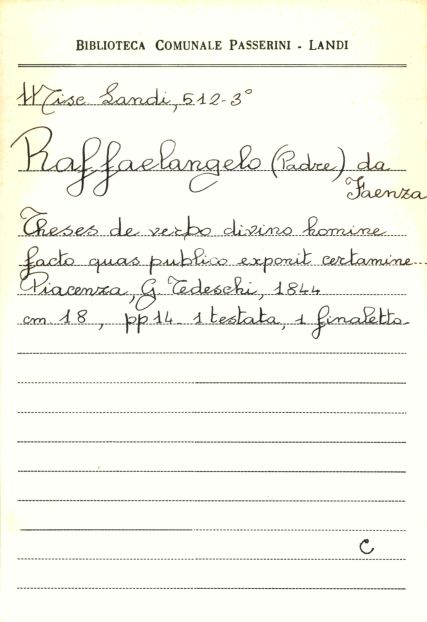 BIBLIOTECA COMUNALE PASSERINI - LANDI
Misc Landi, 512-3°
Raffaelangelo (Padre) da
Faenza
Theses de verbo divino homine
facto quas publico exponit certamine...
Piacenza, G. Tedeschi, 1844
cm. 18, pp 14. 1 testata, 1 finaletto.
C